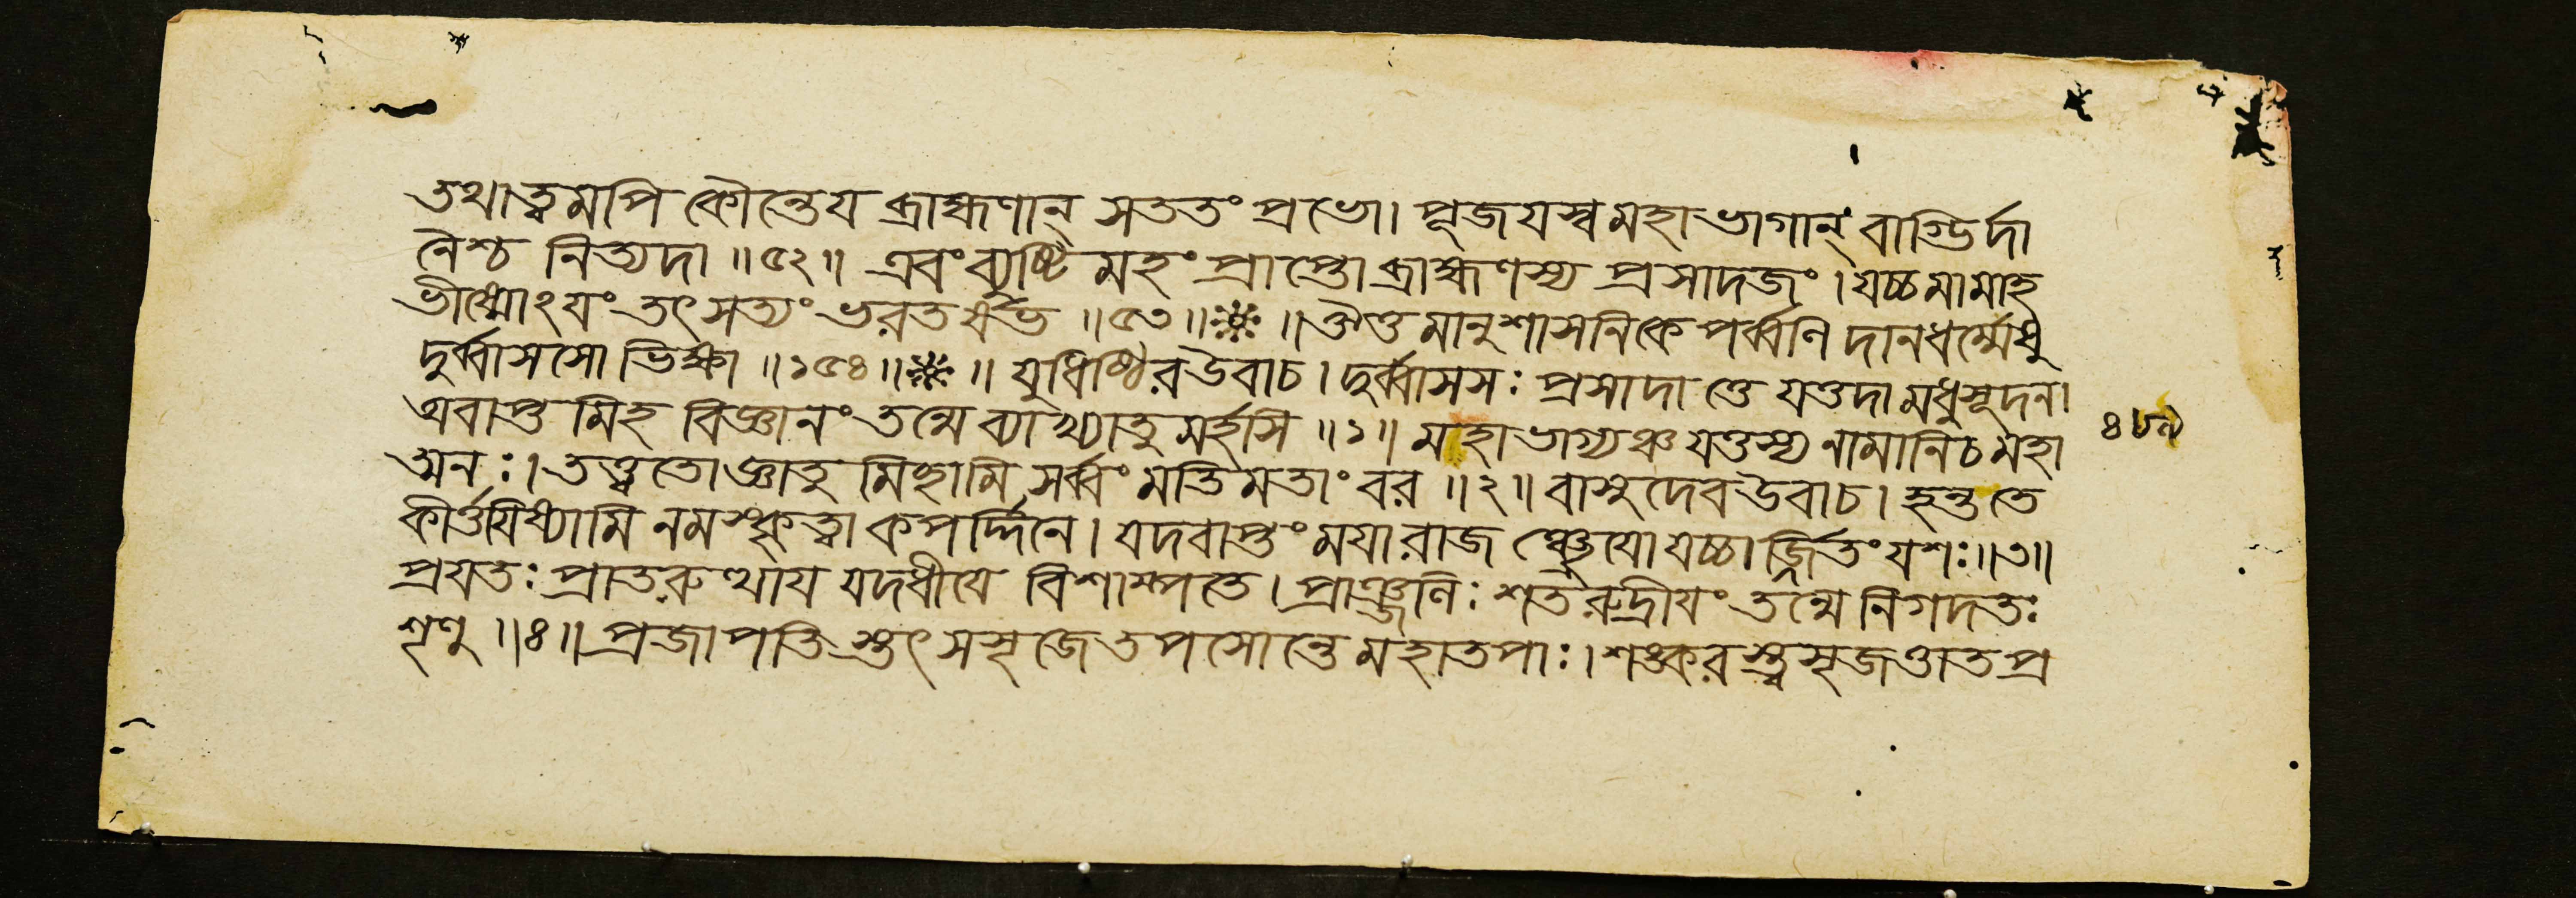 তথাত্বমপি কৌন্তেয ব্রাহ্মণান্ সততং প্রভো। পূজযস্ব মহাভাগান্ বাগ্ভির্দা
নৈশ্চ নিত্যদা ॥৫২॥ এবং ব্যুষ্টি মহং প্রাপ্তো ব্রাহ্মণস্য প্রসাদজং। যচ্চ মামাহ
ভীষ্মোঽযং তৎ সত্যং ভরতর্ষভ ॥৫৩॥ ※ ॥ ঔত্ত মানুশাসনিকে পর্ব্বণি দানধর্ম্মেষু
দুর্ব্বাসসো ভিক্ষা ॥১৫৪॥ ※ ॥ যুধিষ্ঠির উবাচ। দুর্ব্বাসসঃ প্রসাদাত্তে যত্তদা মধুসূদন।
অবাপ্ত মিহ বিজ্ঞানং তন্মে ব্যাখ্যাতু মর্হসি ॥১॥ মহাভাগ্যঞ্চ যত্তস্য নামানি চ মহা
ত্মনঃ। তত্ত্বতো জ্ঞাতু মিচ্ছামি সর্ব্বং মতিমতাং বর ॥২॥ বাসুদেব উবাচ। হন্ত তে
কীর্ত্তযিষ্যামি নমস্কৃত্বা কপর্দ্দিনে। যদবাপ্তং মযা রাজ ঞ্ছ্রেযো যচ্চার্জ্জিতং যশঃ ॥৩॥
প্রযতঃ প্রাতরুত্থায যদধীযে বিশাম্পতে। প্রাঞ্জলিঃ শতরুদ্রীযং তন্মে নিগদতঃ
শৃণু ॥৪॥ প্রজাপতি স্তৎ সসৃজে তপসোন্তে মহাতপাঃ। শঙ্কর স্ত্বসৃজত্তাত প্র